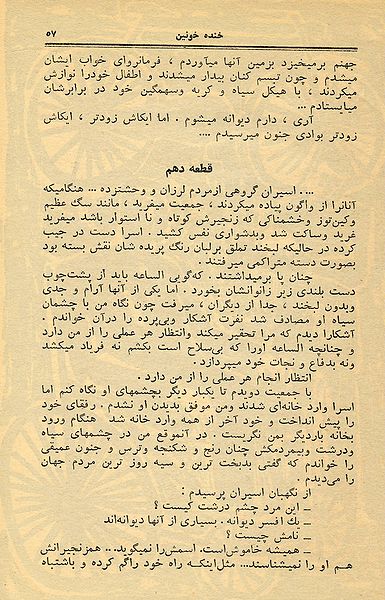 خنده خونین ۵۷
جهنم برمیخیزد بزمین آنها میآوردم ، فرمانروای خواب ایشان
میشدم و چون تبسم کنان بیدار میشدند و اطفال خودرا نوازش
میکردند ، با هیکل سیاه و کریه وسهمگین خود در برابرشان
میایستادم ...
آری ، دارم دیوانه میشوم . اما ایکاش زودتر ، ایکاش
زودتر بوادی جنون میرسیدم ....
قطعه دهم
.... اسیران گروهی ازمردم لرزان و وحشتزده ... هنگامیکه
آنانرا از واگون پیاده میکردند ، جمعیت میغرید ، مانند سگ عظیم
وکین‌توز وخشمناکی که زنجیرش کوتاه و نا استوار باشد میغرید
غرید وساکت شد وبدشواری نفس کشید . اسرا دست در جیب
کرده در حالیکه لبخند تملق برلبان رنگ پریده شان نقش بسته بود
بصورت دسته متراکمی میرفتند .
چنان پا برمیداشتند . که‌گویی الساعه باید از پشت‌چوب
دست بلندی زیر زانوانشان بخورد . اما یکی از آنها آرام و جدی
وبدون لبخند ، جدا از دیگران ، میرفت چون نگاه من با چشمان
سیاه او مصادف شد نفرت آشکار وبی‌پرده را درآن خواندم .
آشکارا دیدم که مرا تحقیر میکند وانتظار هر عملی را از من دارد
و چنانچه الساعه اورا که بی‌سلاح است بکشم نه فریاد میکشد
ونه بدفاع و نجات خود میپردازد .
انتظار انجام هر عملی را از من دارد .
با جمعیت دویدم تا یکبار دیگر بچشمهای او نگاه کنم اما
اسرا وارد خانه‌ای شدند ومن موفق بدیدن او نشدم . رفقای خود
را پیش انداخت و خود آخر از همه وارد خانه شد هنگام ورود
بخانه باردیگر بمن نگریست . در آنموقع من در چشمهای سیاه
ودرشت وبیمردمکش چنان رنج و شکنجه وترس و جنون عمیقی
را خواندم که گفتی بدبخت ترین و سیه روز ترین مردم جهان
را می‌دیدم .
از نگهبان اسیران پرسیدم :
ــ این مرد چشم درشت کیست ؟
ــ یك افسر دیوانه . بسیاری از آنها دیوانه‌اند
ــ نامش چیست ؟
ــ همیشه خاموش‌است. اسمش‌را نمیگوید... همزنجیرانش
هم او را نمیشناسند... مثل‌اینکه راه خود راگم کرده و باشتباه